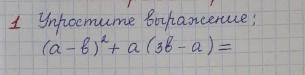 1 Упростите выражение:
(а - в)² + а (3в - а) =